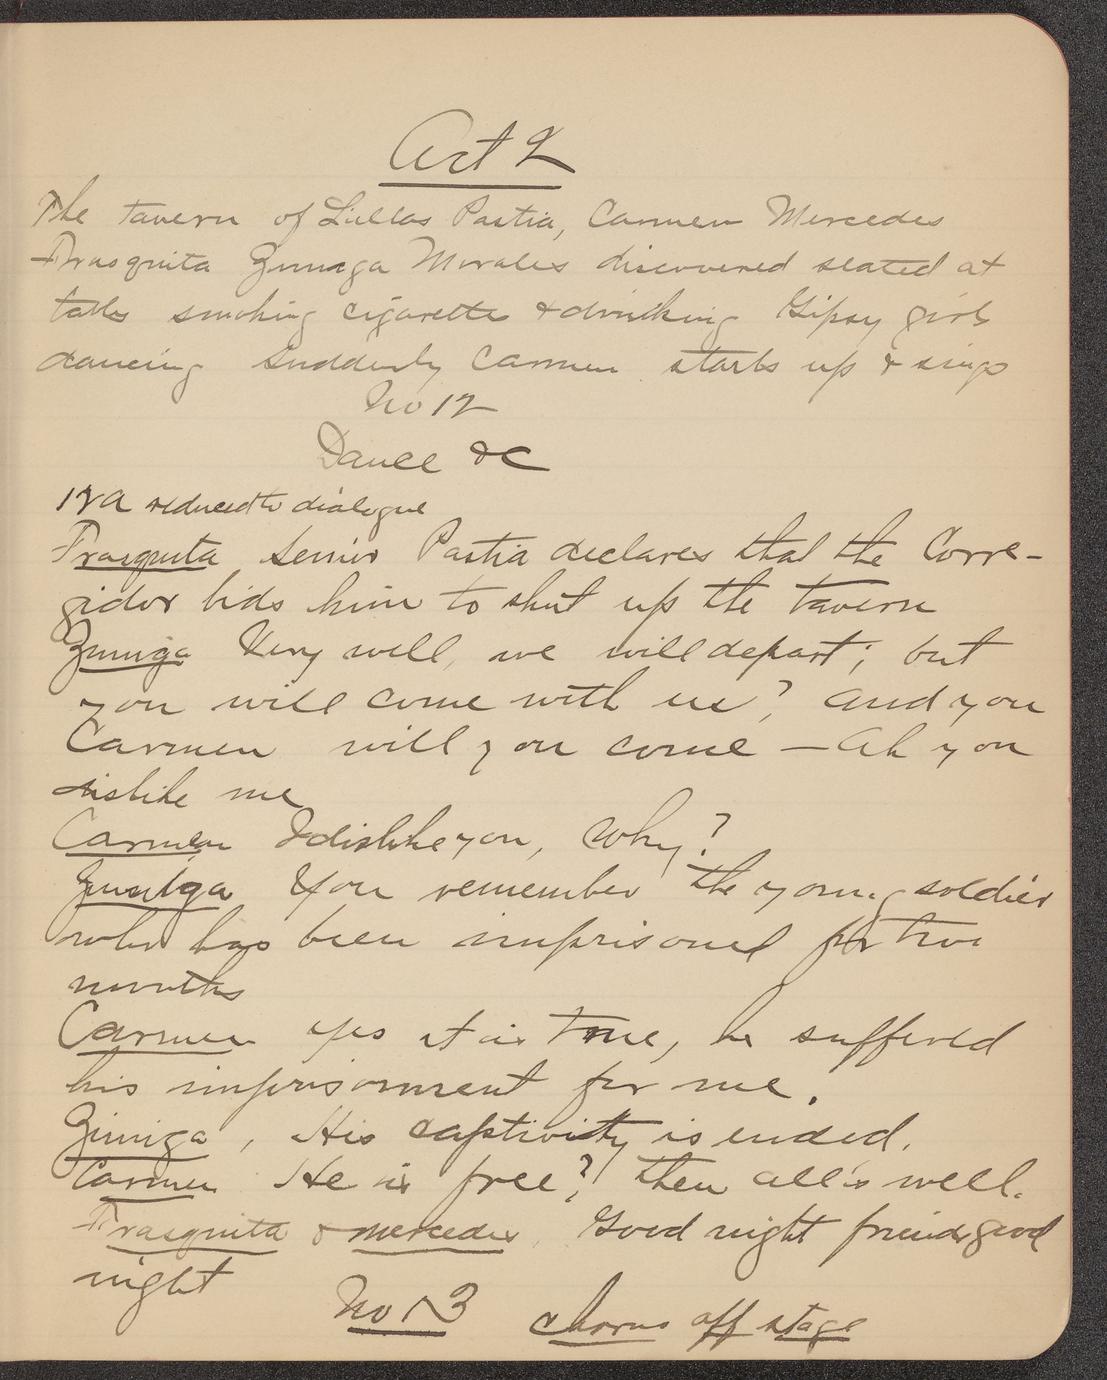 Act 2
The tavern of Lillas Pastia, Carmen Mercedes
Frasquita Zuniga Morales discovered seated at
table smoking cigarette & drinking Gipsy girls
dancing suddenly Carmen starts up & sings
No 12
Dance &c
12a reduced to dialogue
Frasquita Senior Pastia declares that the Corre-
gidor bids him to shut up the tavern
Zuniga Very well, we will depart; but
you will come with us? and you
Carmen will you come — Ah you
dislike me
Carmen I dislike you, why?
Zuniga You remember the young soldier
who has been imprisoned for two
months
Carmen yes it is true, he suffered
his imprisonment for me.
Zuniga, His captivity is ended.
Carmen He is free?! then all's well.
Frasquita & Mercedes. Good night friends good
night
No 13 chorus off stage